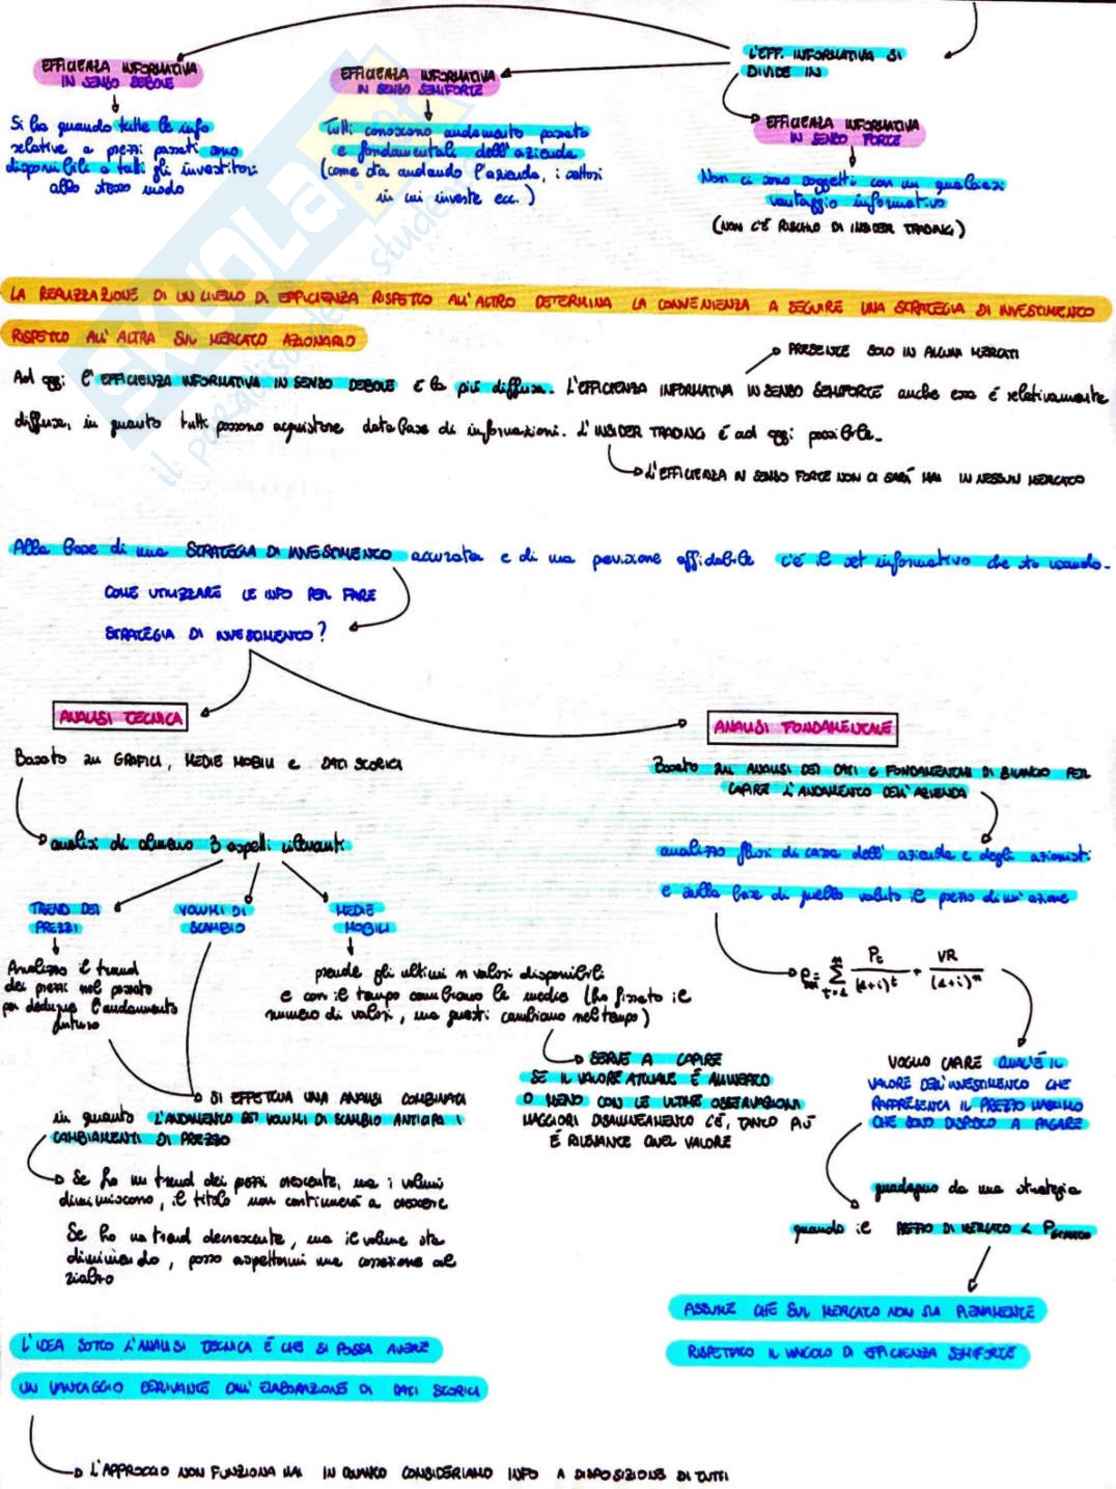 L'EFF. INFORMATIVA SI
DIVIDE IN
EFFICIENZA INFORMATIVA
IN SENSO DEBOLE
Si ha quando tutte le info
relative a prezzi passati sono
disponibili a tutti gli investitori
allo stesso modo
EFFICIENZA INFORMATIVA
IN SENSO SEMIFORTE
Tutti conoscono andamento passato
e fondamentali dell'azienda
(come sta andando l'azienda, i settori
in cui investe ecc.)
EFFICIENZA INFORMATIVA
IN SENSO FORTE
Non ci sono soggetti con un qualsiasi
vantaggio informativo
(NON C'É RISCHIO DI INSIDER TRADING)
LA REALIZZAZIONE DI UN LIVELLO DI EFFICIENZA RISPETTO ALL'ALTRO DETERMINA LA CONVENIENZA A SEGUIRE UNA STRATEGIA DI INVESTIMENTO
RISPETTO ALL'ALTRA SUL MERCATO AZIONARIO
PRESENTE SOLO IN ALCUNI MERCATI
Ad oggi l'EFFICIENZA INFORMATIVA IN SENSO DEBOLE é la più diffusa. L'EFFICIENZA INFORMATIVA IN SENSO SEMIFORTE anche essa é relativamente
diffusa, in quanto tutti possono acquistare data base di informazioni. L'INSIDER TRADING é ad oggi possibile.
L'EFFICIENZA IN SENSO FORTE NON CI SARÁ MAI IN NESSUN MERCATO
Alla base di una STRATEGIA DI INVESTIMENTO accurata e di una previsione affidabile c'é il set informativo che sto usando.
COME UTILIZZARE LE INFO PER FARE
STRATEGIA DI INVESTIMENTO?
ANALISI TECNICA
Basato su GRAFICI, MEDIE MOBILI e DATI STORICI
analisi di almeno 3 aspetti rilevanti
TREND DEI
PREZZI
Analizzo il trend
dei prezzi nel passato
per dedurne l'andamento
futuro
VOLUMI DI
SCAMBIO
MEDIE
MOBILI
prende gli ultimi n valori disponibili
e con il tempo cambiano le medie (ho fissato il
numero di valori, ma questi cambiano nel tempo)
SERVE A CAPIRE
SE IL VALORE ATTUALE É ALLINEATO
O MENO CON LE ULTIME OSSERVAZIONI
MAGGIORI DISALLINEAMENTO C'É, TANTO PIÙ
É RILEVANTE QUEL VALORE
SI EFFETTUA UNA ANALISI COMBINATA
in quanto L'ANDAMENTO DEI VOLUMI DI SCAMBIO ANTICIPA I
CAMBIAMENTI DI PREZZO
Se ho un trend dei prezzi crescente, ma i volumi
diminuiscono, il titolo non continuerà a crescere
Se ho un trend decrescente, ma il volume sta
diminuendo, posso aspettarmi una correzione al
rialzo
L'IDEA SOTTO L'ANALISI TECNICA É CHE SI POSSA AVERE
UN VANTAGGIO DERIVANTE DALL'ELABORAZIONE DI DATI STORICI
L'APPROCCIO NON FUNZIONA MAI IN QUANTO CONSIDERIAMO INFO A DISPOSIZIONE DI TUTTI
ANALISI FONDAMENTALE
Basato su ANALISI DEI DATI E FONDAMENTALI DI BILANCIO PER
CAPIRE L'ANDAMENTO DELL'AZIENDA
analizzo flussi di cassa dell'azienda e degli azionisti
e sulla base di quello valuto il prezzo di un'azione
VOGLIO CAPIRE QUAL'É IL
VALORE DELL'INVESTIMENTO CHE
RAPPRESENTA IL PREZZO MASSIMO
CHE SONO DISPOSTO A PAGARE
guadagno da una strategia
quando il PREZZO DI MERCATO <
ASSUME CHE SUL MERCATO NON SIA PIENAMENTE
RISPETTATO IL VINCOLO DI EFFICIENZA SEMIFORTE